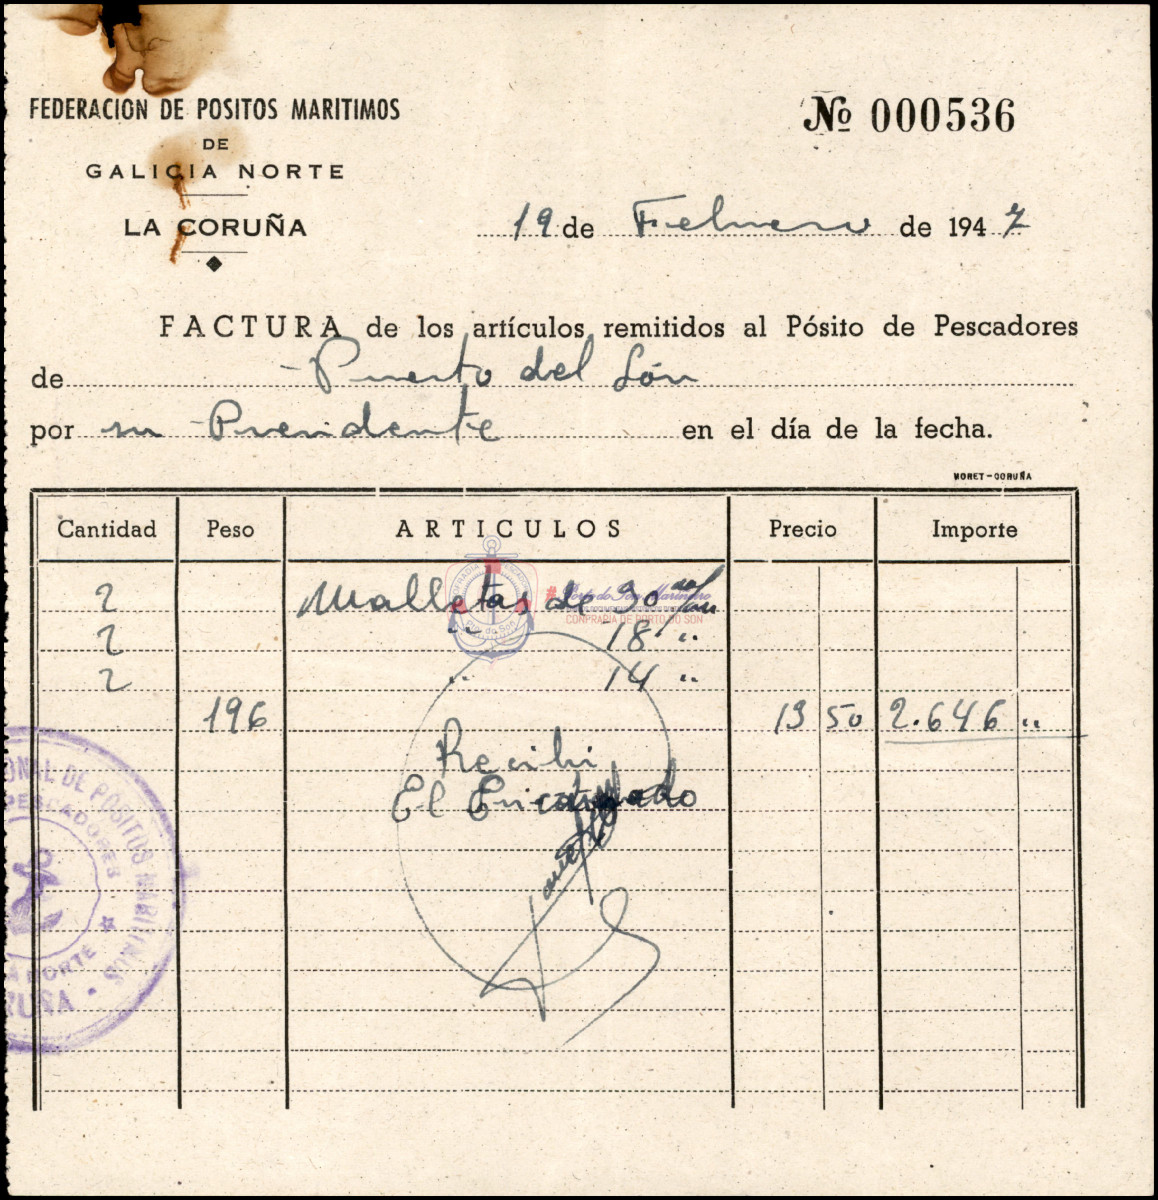 FEDERACION DE POSITOS MARITIMOS
DE
GALICIA NORTE
LA CORUÑA
Nº 000536
19 de Febrero de 1947
FACTURA de los artículos remitidos al Pósito de Pescadores
de Puerto del Són
por su Presidente en el día de la fecha.
MORET-CORUÑA
Cantidad Peso ARTICULOS Precio Importe
2 Malletas de 20
2 " 18 "
2 " 14 "
196 13 50 2.646 "
CONFRARÍA DE PORTO DO SON
Recibi
El Encargado
ONAL DE POSITOS MARITIMOS
PESCADORES
A NORTE
RUÑA